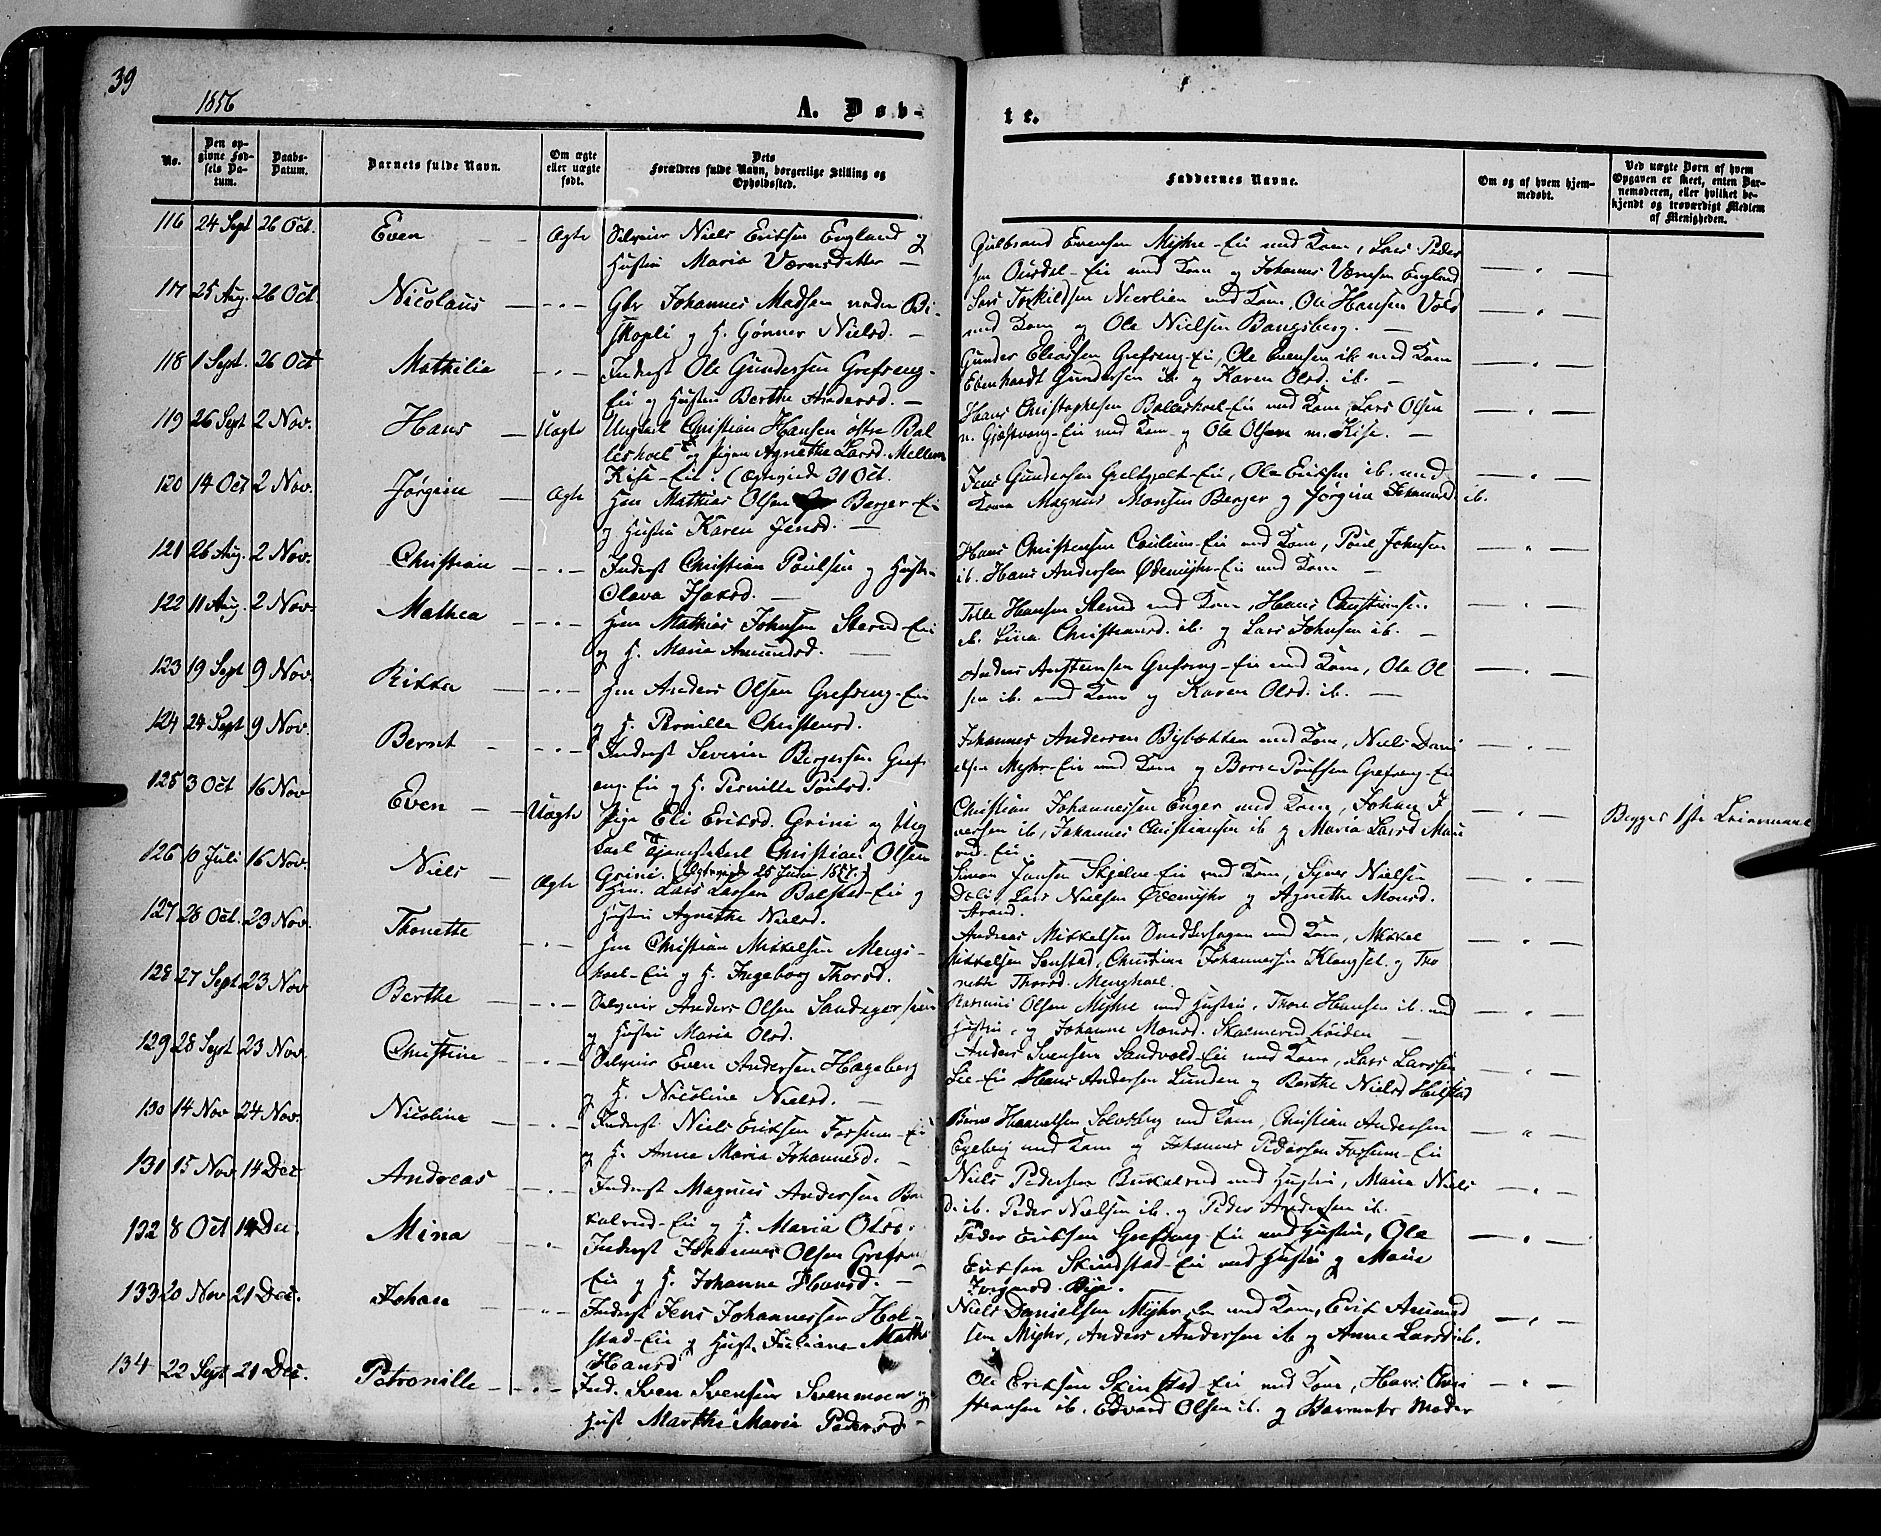 39
1856
A. Døb-
te.
No.
Den op-
givne Fød-
sels Da-
tum.
Daabs-
Datum.
Barnets fulde Navn.
Om ægte
eller uægte
født.
Dets
Forældres fulde Navn, borgerlige Stilling og
Opholdssted.
Faddernes Navne.
Om og af hvem hjem-
medøbt.
Ved uægte Børn af hvem
Opgaven er skeet, enten Bar-
nemoderen, eller hvilket be-
kjendt og troværdigt Medlem
af Menigheden.
116 24 Sept 26 Oct. Even Ægte Selveier Niels Eriksen England og
Hustru Maria Værnsdatter
Gulbrand Evensen Myhre-Eie med Kone, Lars Peder
sen Eie med Kone og Johannes England
117 25 Aug. 26 Oct. Nicolaus Gbr Johannes Madsen nedre Bi-
skopli og H. Gønner Nielsd.
Lars Torkildsen Nierlien med Kone, Ole Hansen Vold
med Kone og Ole Nielsen Bangsberg.
118 1 Sept. 26 Oct Mathilie Inderst Ole Gundersen Grefseng-
Eie og Hustru Berthe Andersd.
Gunder Eliassen Grefseng-Eie, Ole Evensen ib. med Kone
Edenhardt Gundersen ib. og Karen Olsd. ib.
119 26 Sept 2 Nov. Hans Uægte Ungkarl Christian Hansen østre Bal
lishoel og Pigen Agnethe Larsd. Mellem
Kise-Eie. (Ægteviede 31 Oct.
Hans Christophersen Balleshoel-Eie med Kone, Lars Olsen
n. Gjestvang-Eie med Kone og Ole Olsen m. Kise.
120 14 Oct 2 Nov. Jørgine Ægte Hmd Mathias Olsen Berger-Eie
og Hustru Karen Jensd.
Jens Gundersen Eie, Ole Eriksen ib. med
Kone Magnus Monsen Berger og Jørgine Johannesd. ib.
121 26 Aug. 2 Nov. Christian Inderst Christian Poulsen og Hustru
Olava Isaksd.
Hans Christensen Eie med Kone, Poul Johnsen
ib. Hans Andersen Ødemyhr-Eie med Kone
122 11 Aug. 2 Nov. Mathea Hmd Mathias Johnsen Eie
og H. Maria Amundsd.
Hansen med Kone, Hans Christiansen
ib. Lina Christiansd. ib. og Lars Johnsen ib.
123 19 Sept 9 Nov. Rikka Hmd Anders Olsen Grefseng-Eie
og H. Pernille Christensd.
Anders Grefseng-Eie med Kone, Ole Ol
sen ib. med Kone og Karen Olsd. ib.
124 24 Sept 9 Nov. Bernt Inderst Severin Birgersen Grefs
eng-Eie og H. Pernille Poulsd.
Johannes Andersen med Kone, Niels Dani
elsen Myhr-Eie med Kone og Poulsen Grefseng-Eie
125 3 Oct 16 Nov Even Uægte Pige Eli Eriksd. Grini og Ung
karl Tjenestekarl Christian Olsen
Grini. (Ægteviede 25 Juni 1857.)
Christian Johannessen Enger med Kone, Johan I
versen ib, Johannes Christiansen ib og Maria Larsd
Begges 1ste Leiermaal
126 10 Juli 16 Nov. Niels Ægte Hmd. Lars Larsen Balstad-Eie og
Hustru Agnethe Nielsd.
Simon Jensen Eie med Kone, Syver Nielsen
Lars Nielsen Ødemyhr og Agnethe Monsd.
Strand.
127 28 Oct. 23 Nov. Thonette Hmd Christian Mikkelsen Mengs-
hoel-Eie og H. Ingeborg Thorsd.
Andreas Mikkelsen med Kone, Mikkel
Mikkelsen Christine Johannesen og Tho
nette Thorsd. Mengshoel.
128 27 Sept 23 Nov Berthe Selveier Anders Olsen
og Hustru Maria Olsd.
Rasmus Olsen Myhre med Hustru, Thore Hansen ib. med
Hustru, og Johanne Monsd.
129 28 Sept 23 Nov. Christine Selveier Even Andersen Hageberg
og H. Nicoline Nielsd.
Anders Svensen Sandvold-Eie med Kone, Lars Larssen
Lie-Eie Hans Andersen Lunden og Berthe Nielsd
130 14 Nov 24 Nov. Nicoline Inderst Niels Eriksen Fossum-Eie
og H. Anne Maria Johannesd.
Solvsberg med Kone, Christian Andersen
Egeberg med Kone og Johannes Pedersen Fossum-Eie
131 15 Nov 14 Dec Andreas Inderst Magnus Andersen
Eie og H. Maria Olsd.
Niels Pedersen med Hustru, Maria Niels
d. ib. Peder Nielsen ib. og Peder Andersen ib.
132 8 Oct 14 Dec. Mina Inderst Johannes Olsen Grefseng
Eie og H. Johanne Hansd.
Peder Eriksen Grefseng-Eie med Hustru, Ole
Eriksen Skindstad-Eie med Hustru og Marie
133 20 Nov 21 Dec. Johan Inderst Jens Johannessen Hol-
stad-Eie og Hust. Juliane Mathea
Hansd
Niels Danielsen Myhr-Eie med Kone, Erik Amund
sen Myhr, Anders Andersen ib og Anne Larsd ib.
134 22 Sept 21 Dec. Petronille Ind. Sven Svensen Svenmoen og
Hust Marthe Maria Pedersd
Ole Eriksen Skinstad-Eie med Kone, Hans Chri
stiansen ib. Edvard Olsen ib. og Barnets Moder